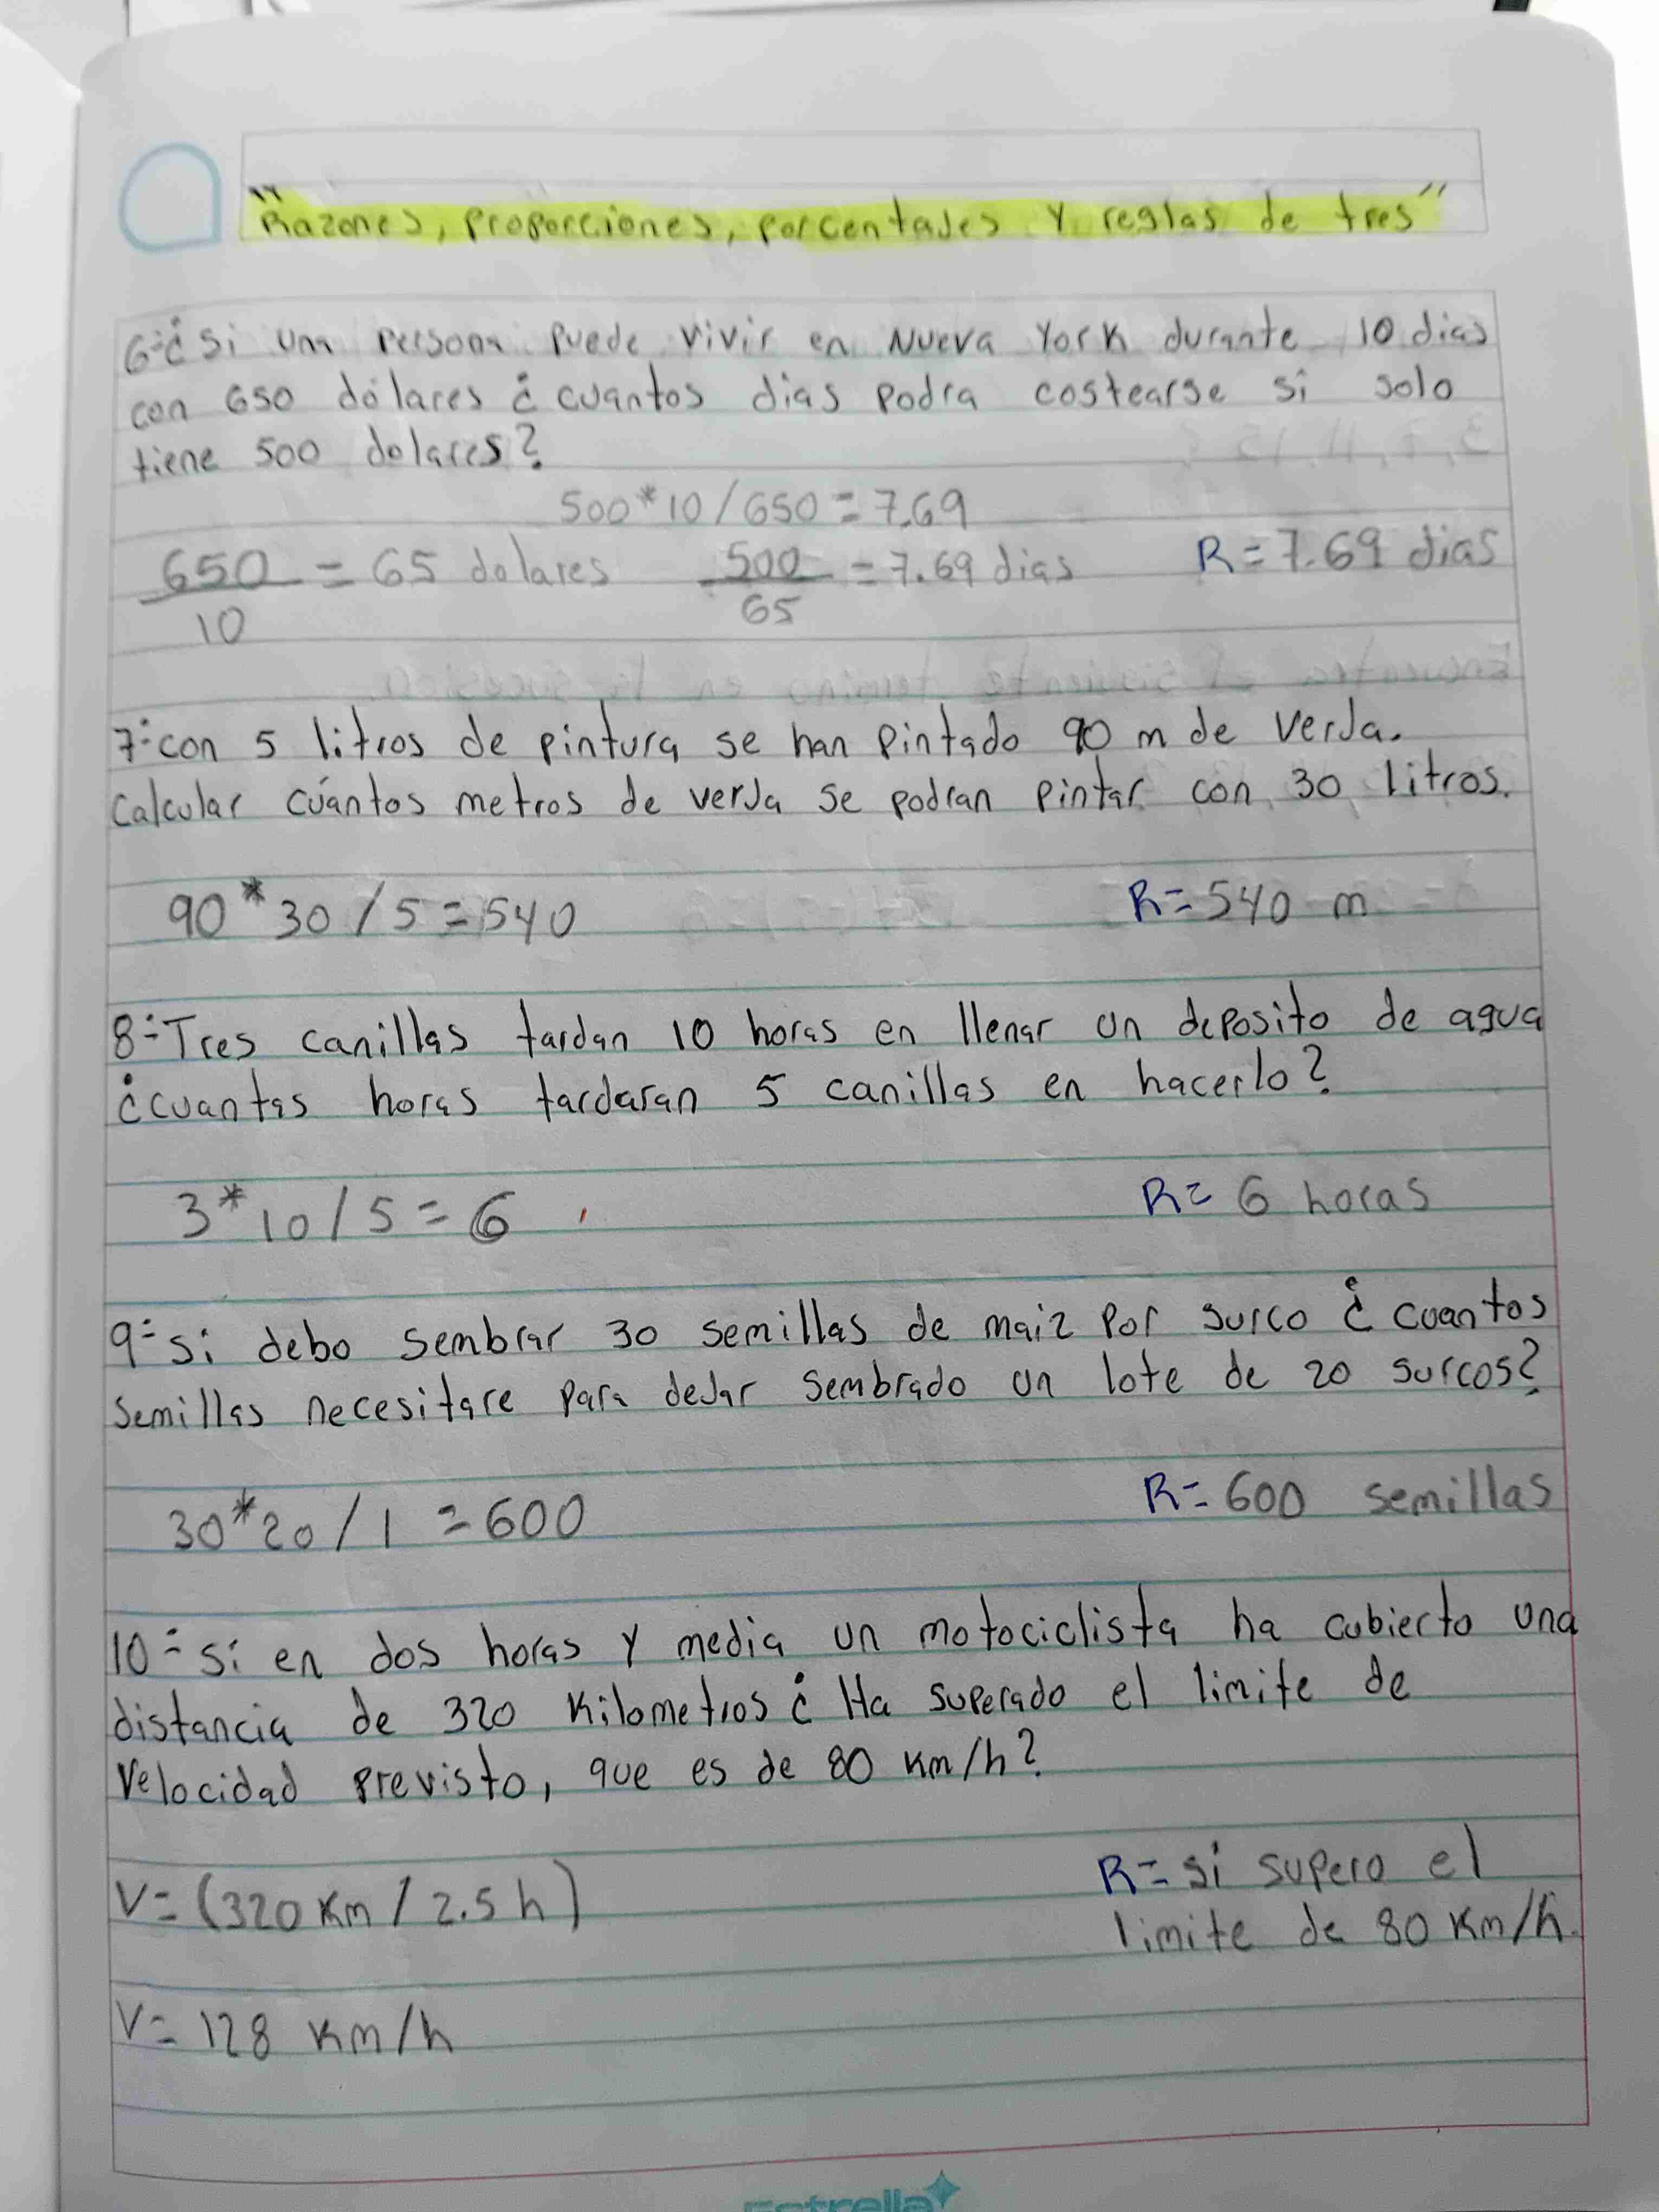 "Razones, proporciones, porcentajes y reglas de tres"
6-¿ Si una persona puede vivir en Nueva York durante 10 dias
con 650 dólares ¿ cuantos dias podra costearse si solo
tiene 500 dolares?
500*10/650=7.69
650/10 = 65 dolares 500/65 = 7.69 dias R=7.69 dias
7-con 5 litros de pintura se han pintado 90 m de verja.
Calcular cuántos metros de verja se podran pintar con 30 litros.
90*30/5=540 R=540 m
8-Tres canillas tardan 10 horas en llenar un deposito de agua
¿cuantas horas tardaran 5 canillas en hacerlo?
3*10/5=6 R= 6 horas
9-si debo sembrar 30 semillas de maiz por surco ¿ cuantos
semillas necesitare para dejar sembrado un lote de 20 surcos?
30*20/1=600 R= 600 semillas
10-si en dos horas y media un motociclista ha cubierto una
distancia de 320 Kilometros ¿ Ha superado el limite de
velocidad previsto, que es de 80 Km/h?
V=(320 Km/2.5 h) R= si supero el
limite de 80 Km/h.
V= 128 Km/h
Estrella